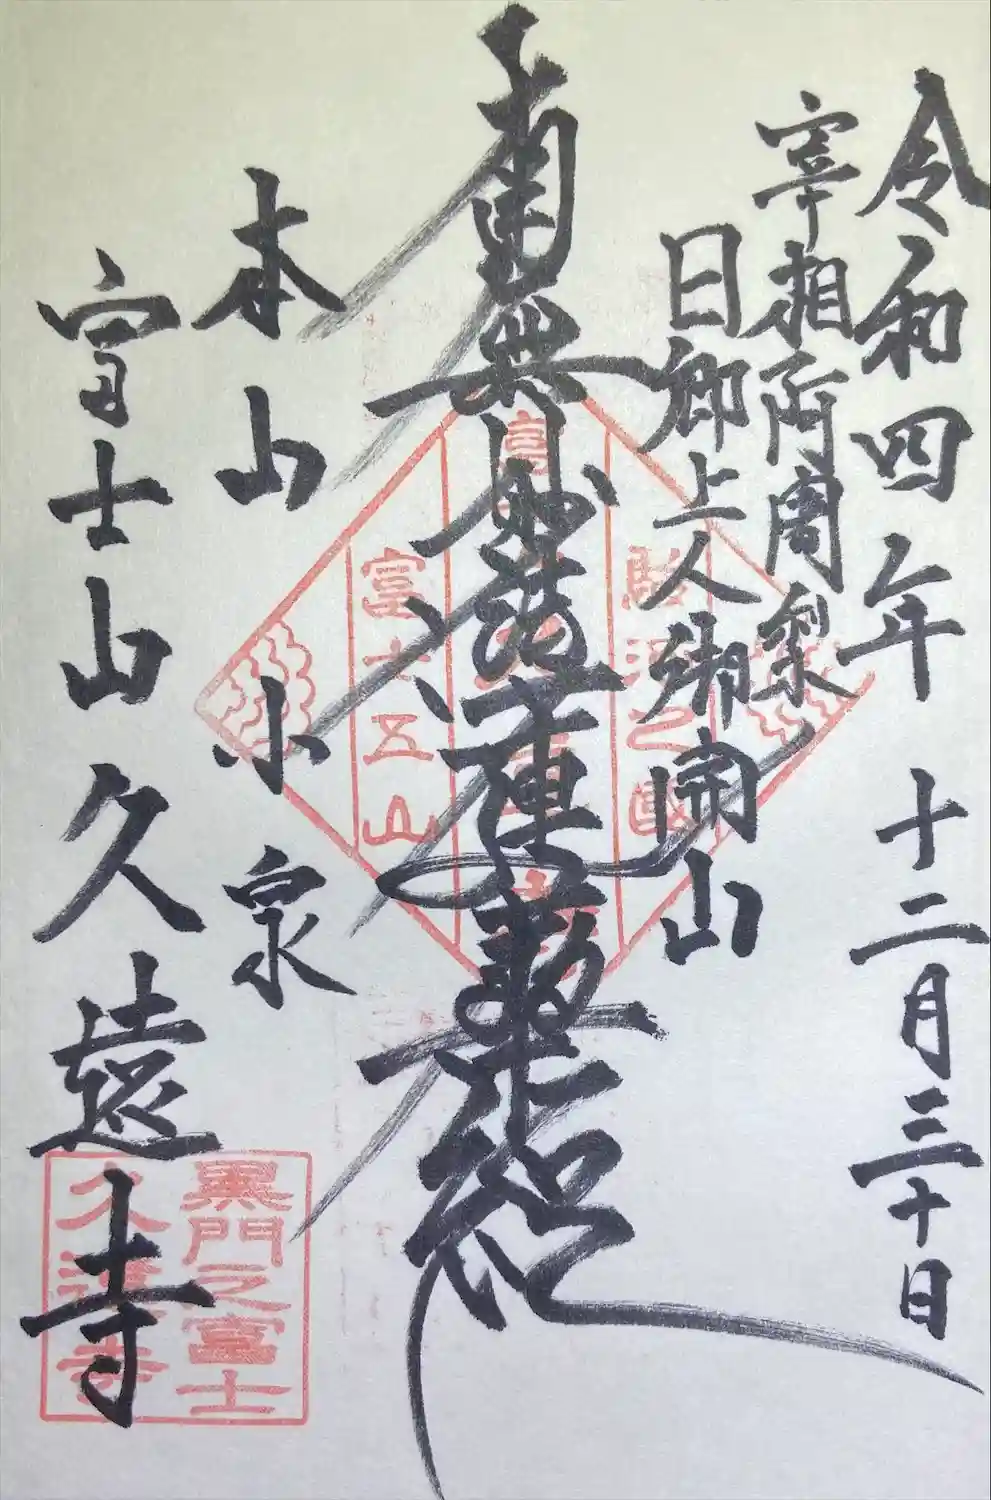 令和四年十二月三十日
宰相阿闍梨
日郷上人御開山
南無妙法蓮華経
本山小泉
富士山久遠寺
駿河之國
富士五山
黒門之富士
久遠寺